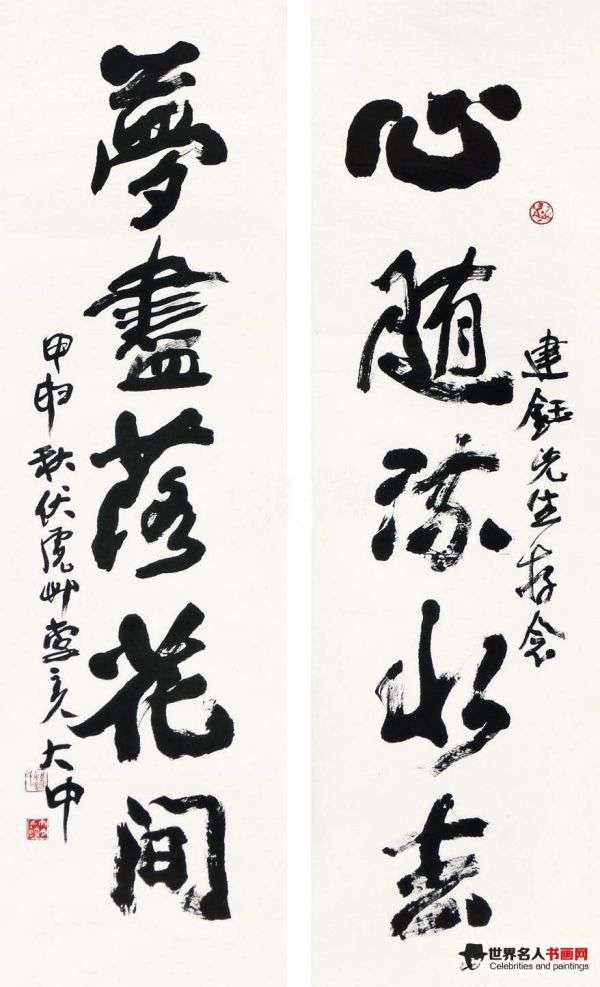 建鈺先生存念
心随流水去
夢盡落花间
甲申秋伏虎艸堂主人大中
世界名人书画网
Celebrities and paintings